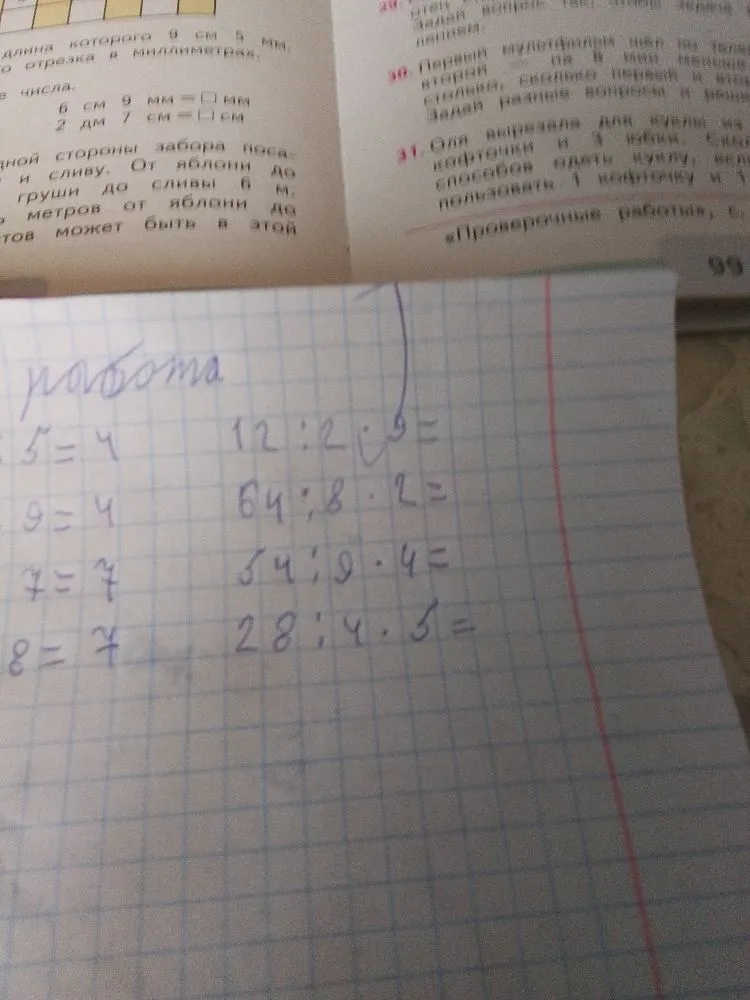 длина которого 9 см 5 мм.
о отрезка в миллиметрах.
е числа.
6 см 9 мм = □ мм
2 дм 7 см = □ см
дной стороны забора поса-
и сливу. От яблони до
груши до сливы 6 м.
метров от яблони до
тов может быть в этой
29.
Задай вопрос так, чтобы задача
лением.
30. Первый мультфильм шёл по теле
второй на 8 мин меньше
столько, сколько первый и втор
Задай разные вопросы и реши
31. Оля вырезала для куклы из
кофточки и 3 юбки. Ско
способов одеть куклу, если
пользовать 1 кофточку и 1
«Проверочные работы», с.
99
работа
: 5 = 4
9 = 4
7 = 7
8 = 7
12 : 2 · 9 =
64 : 8 · 2 =
54 : 9 · 4 =
28 : 4 · 5 =